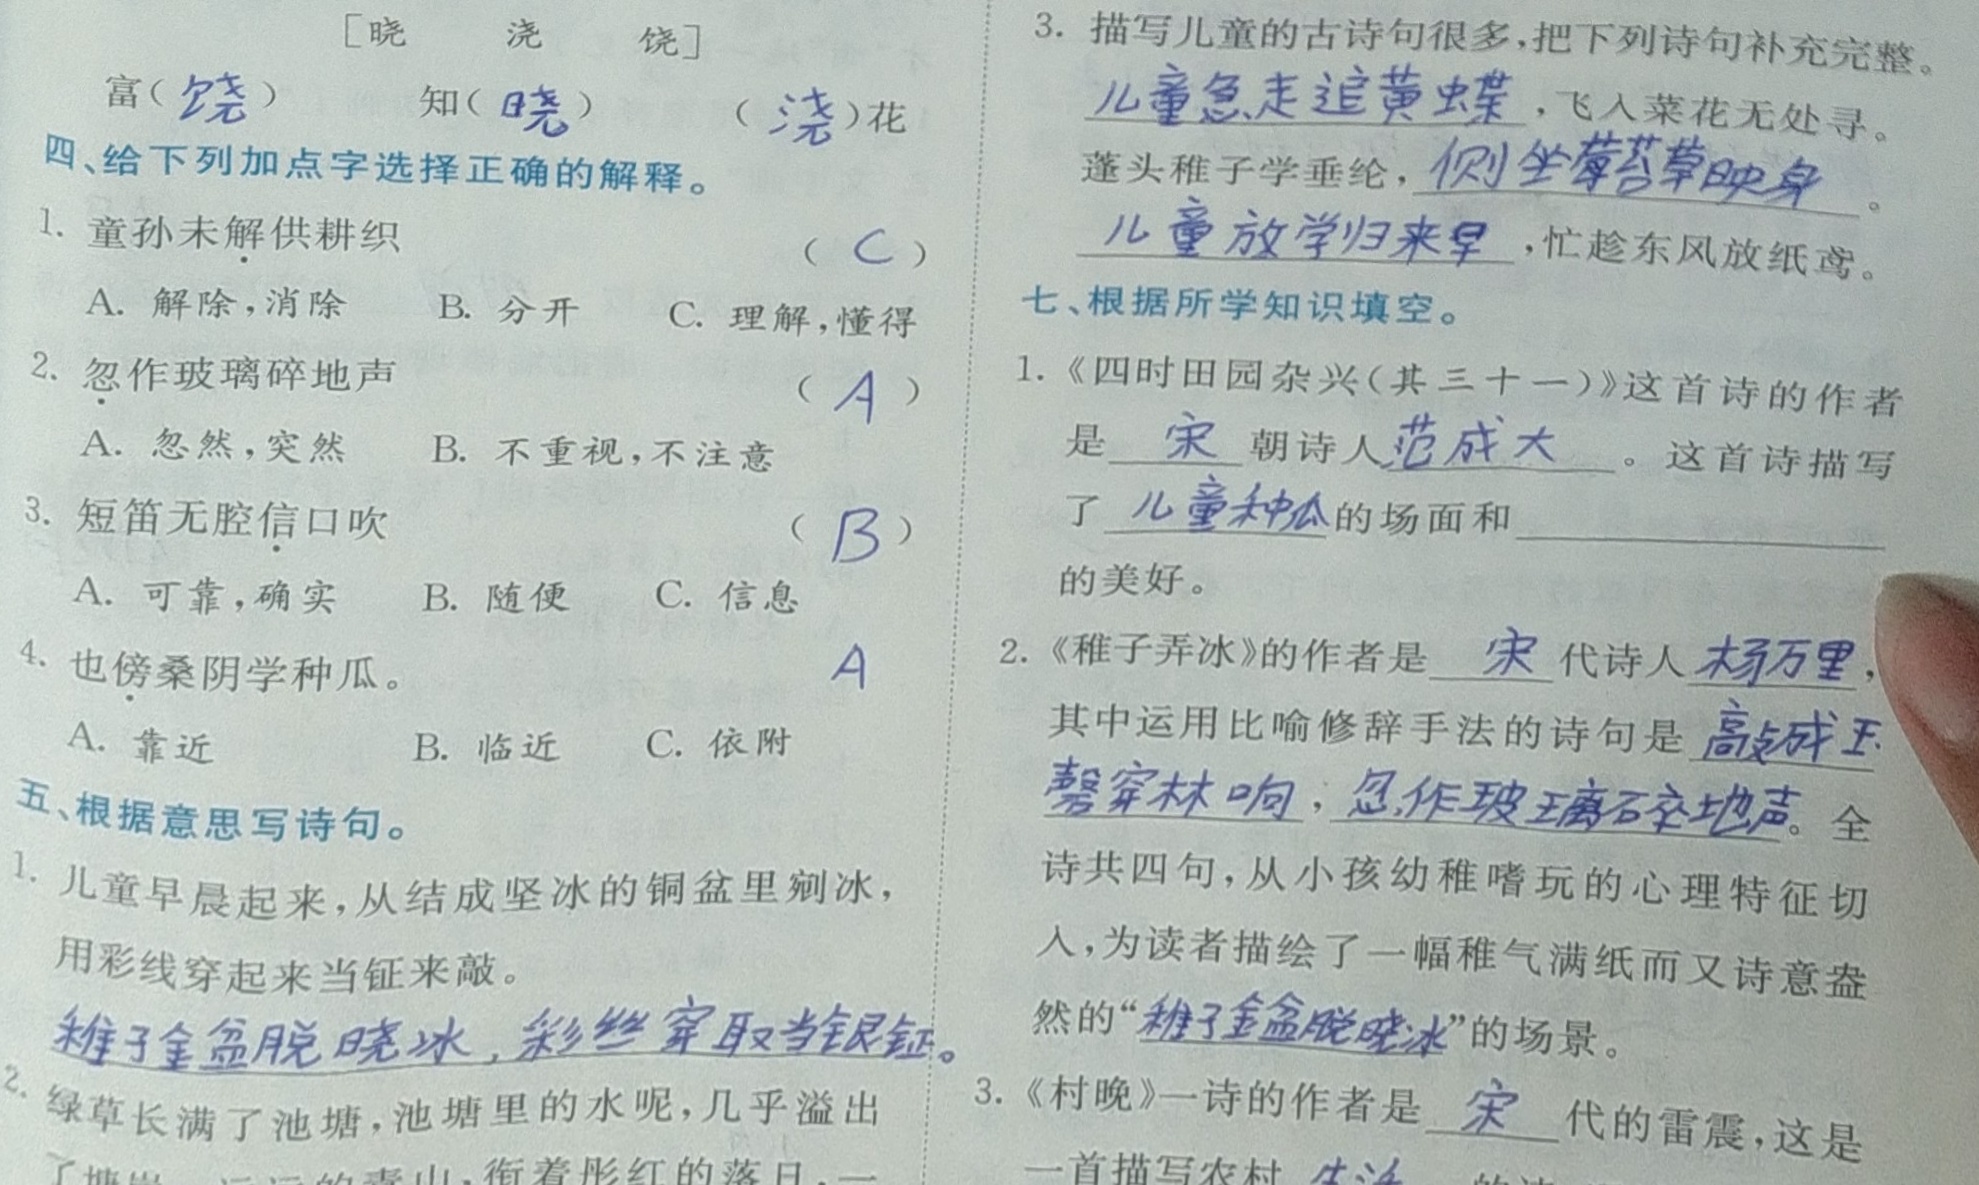 [晓 浇 饶]
富(饶) 知(晓) (浇)花
四、给下列加点字选择正确的解释。
1. 童孙未解供耕织 (C)
A. 解除,消除 B. 分开 C. 理解,懂得
2. 忽作玻璃碎地声 (A)
A. 忽然,突然 B. 不重视,不注意
3. 短笛无腔信口吹 (B)
A. 可靠,确实 B. 随便 C. 信息
4. 也傍桑阴学种瓜。 A
A. 靠近 B. 临近 C. 依附
五、根据意思写诗句。
1. 儿童早晨起来,从结成坚冰的铜盆里剜冰,
用彩线穿起来当钲来敲。
稚子金盆脱晓冰,彩丝穿取当银钲。
2. 绿草长满了池塘,池塘里的水呢,几乎溢出
了塘岸。远远的青山,衔着彤红的落日,一
3. 描写儿童的古诗句很多,把下列诗句补充完整。
儿童急走追黄蝶,飞入菜花无处寻。
蓬头稚子学垂纶,侧坐莓苔草映身。
儿童放学归来早,忙趁东风放纸鸢。
七、根据所学知识填空。
1.《四时田园杂兴(其三十一)》这首诗的作者
是 宋 朝诗人范成大。这首诗描写
了 儿童种瓜的场面和
的美好。
2.《稚子弄冰》的作者是 宋 代诗人 杨万里,
其中运用比喻修辞手法的诗句是 敲成玉
磬穿林响,忽作玻璃碎地声。全
诗共四句,从小孩幼稚嗜玩的心理特征切
入,为读者描绘了一幅稚气满纸而又诗意盎
然的“稚子金盆脱晓冰”的场景。
3.《村晚》一诗的作者是 宋 代的雷震,这是
一首描写农村 生活 的诗